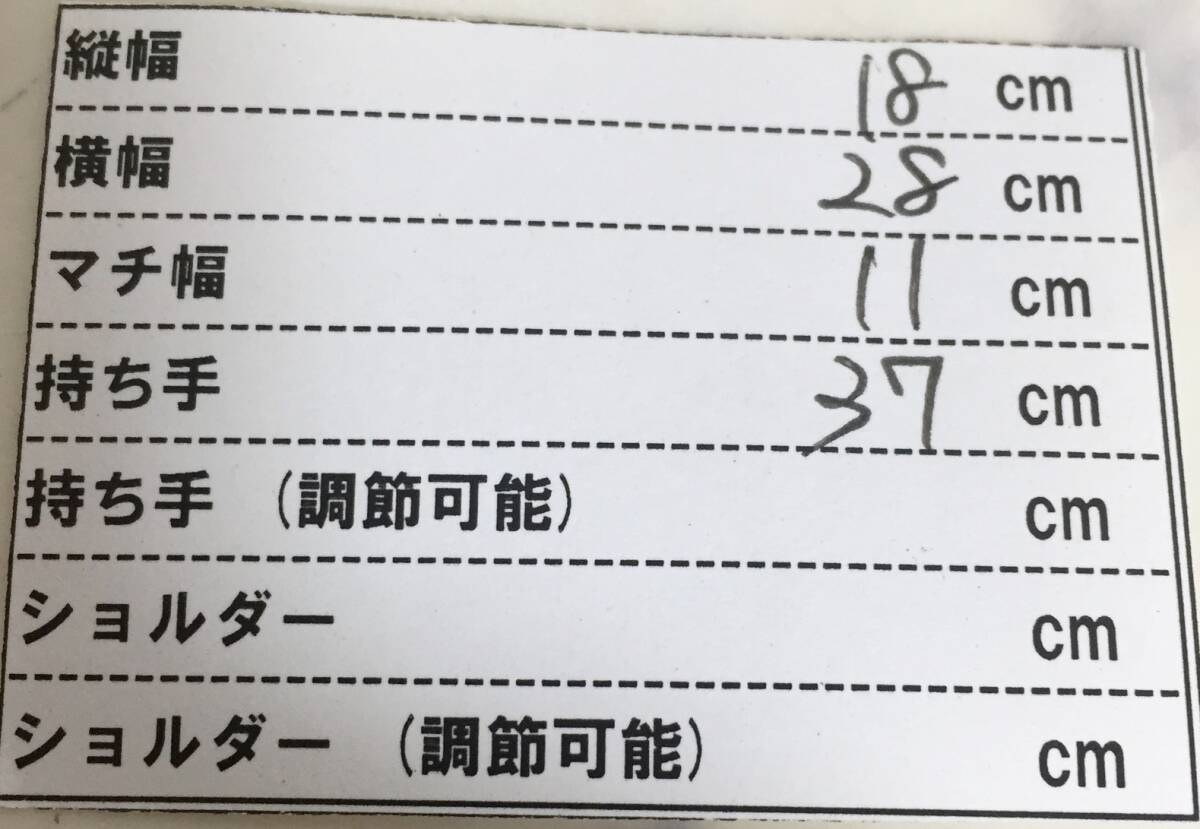 縦幅 18 cm
横幅 28 cm
マチ幅 11 cm
持ち手 37 cm
持ち手 (調節可能) cm
ショルダー cm
ショルダー (調節可能) cm